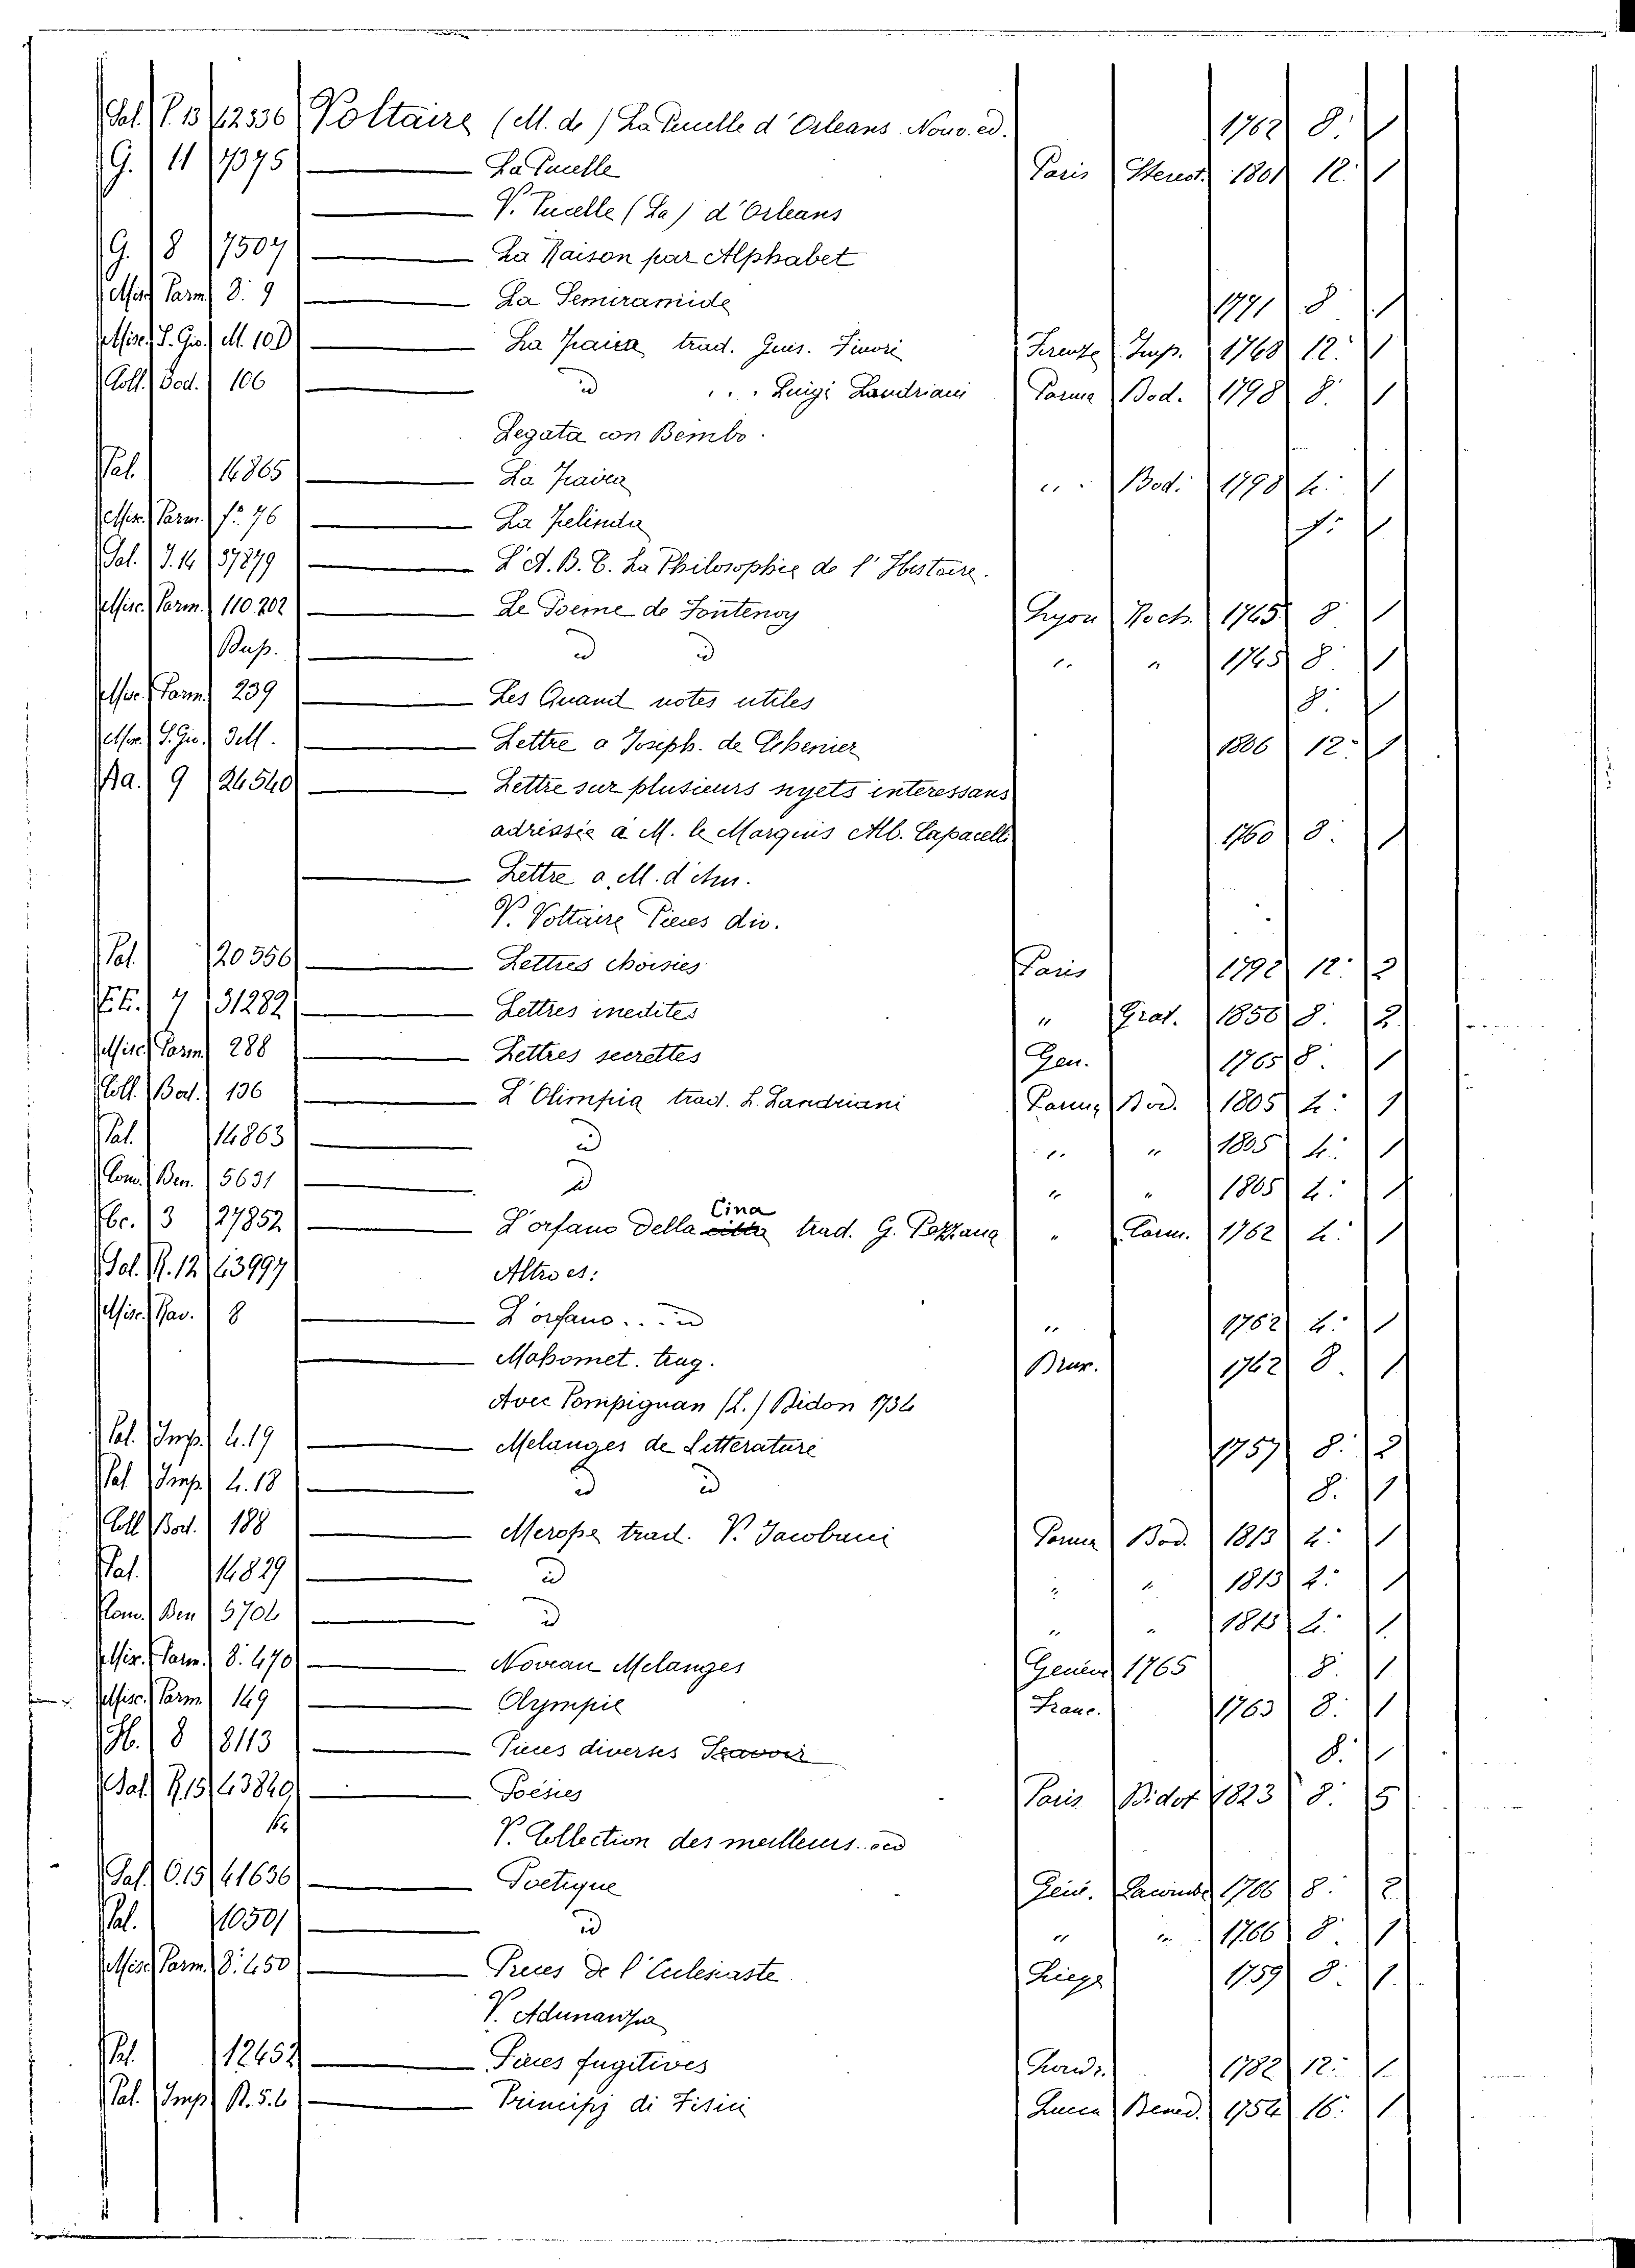 Sal. P. 13 42336 Voltaire (M. de) La Pucelle d'Orleans. Nouv. ed. 1762 8: 1
G. 11 7375 La Pucelle Paris Stereot. 1801 12: 1
V. Pucelle (La) d'Orleans
G. 8 7504 La Raison par Alphabet
Misc. Parm. 8: 9 La Semiramide 1771 8 1
Misc. S. Gio. M. 10D La Zaira trad. Gius. Finori Firenze Imp. 1768 12: 1
Coll. Bod. 106 id . . . Luigi Landriani Parma Bod. 1798 8. 1
Legata con Bembo.
Pal. 14865 La Zaira " Bod. 1798 4: 1
Misc. Parm. f: 76 La Zelinda f: 1
Sal. I. 14 37879 L'A. B. C. La Philosophie de l'Histoire.
Misc. Parm. 110.202 Le Poeme de Fontenoy Lyon Roch. 1745 8 1
Bup. id id " " 1745 8 1
Misc. Parm. 239 Les Quand notes utiles 8. 1
Misc. S. Gio. Dell. Lettre a Joseph. de Chenier 1806 12: 1
Ra. 9 24540 Lettre sur plusieurs sujets interessans
adressée a M. le Marquis Alb. Capacelli 1760 8: 1
Lettre a M. d'Am.
V. Voltaire Pieces div.
Pal. 20556 Lettres choisies Paris 1792 12: 2
7 31282 Lettres inedites " Grat. 1856 8. 2
Misc. Parm. 288 Lettres secrettes Gen. 1765 8. 1
Coll. Bod. 136 L'Olimpia trad. L. Landriani Parma Bod. 1805 4: 1
Pal. 14863 id " " 1805 4: 1
Com. Ben. 5631 id " " 1805 4: 1
Bc. 3 27852 L'orfano della Cina trad. G. Pezzana " Parm. 1762 4: 1
Sal. R. 12 43997 Altro es:
Misc. Pav. 8 L'orfano . . . id " 1762 4: 1
Mahomet. trag. Brux. 1742 8 1
Avec Pompignan (L.) Didon 1734
Pal. Imp. 4.19 Melanges de Litterature 1757 8: 2
Pal. Imp. 4.18 id id 8. 1
Coll. Bod. 188 Merope trad. V. Jacobacci Parma Bod. 1813 4: 1
Pal. 14829 id " " 1813 4: 1
Com. Ben 5704 id " " 1813 4: 1
Misc. Parm. 8: 470 Noveau Melanges Geneve 1765 8. 1
Misc. Parm. 149 Olympie Franc. 1763 8: 1
H. 8 8113 Pieces diverses 8. 1
Sal. R. 15 43840 Poésies Paris Didot 1823 8: 5
V. Collection des meilleurs
Sal. O. 15 41636 Poetique Gené. 1766 8: 2
Pal. 10501 id " " 1766 8. 1
Misc. Parm. 8: 450 Preces de l'Eclesiaste. Liege 1759 8. 1
V. Adunanza
Pal. 12452 Pieces fugitives Lond. 1782 12: 1
Pal. Imp. R. 5.6 Principj di Fisici Lucca Bened. 1754 16: 1